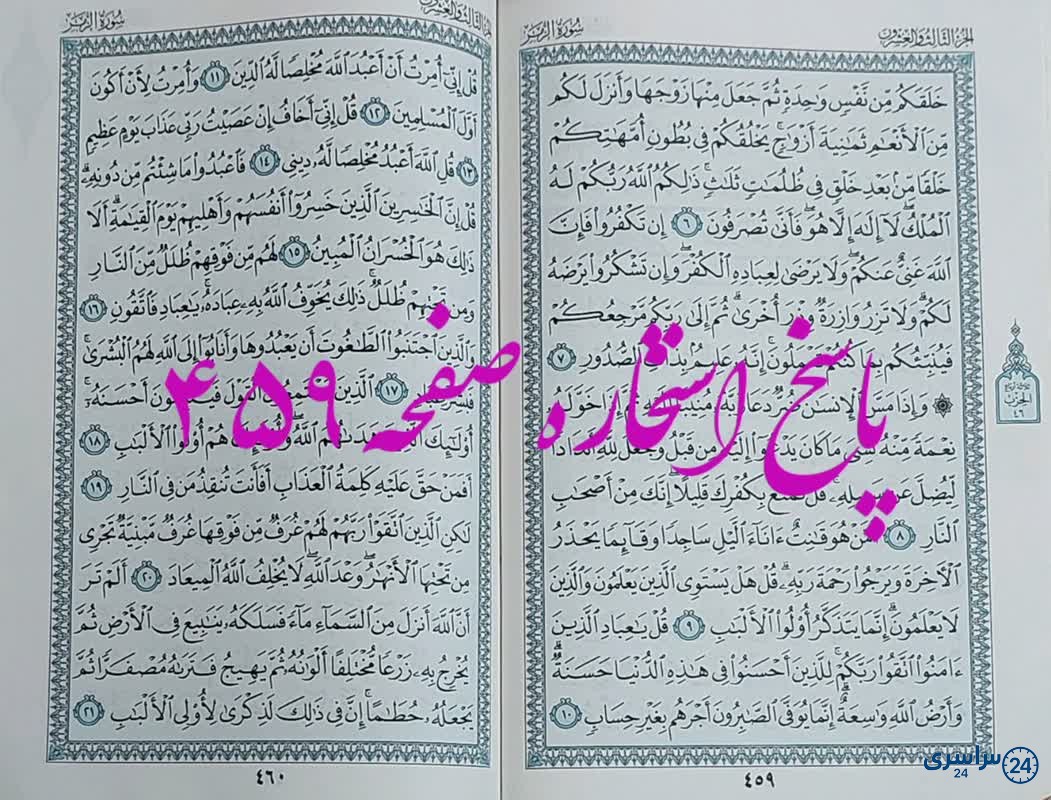 سُورَةُ الزُّمَرِ
الجُزْءُ الثَّالِثُ وَالعِشْرُونَ
خَلَقَكُم مِّن نَّفْسٍ وَٰحِدَةٍ ثُمَّ جَعَلَ مِنْهَا زَوْجَهَا وَأَنزَلَ لَكُم
مِّنَ ٱلْأَنْعَٰمِ ثَمَٰنِيَةَ أَزْوَٰجٍ ۚ يَخْلُقُكُمْ فِى بُطُونِ أُمَّهَٰتِكُمْ
خَلْقًا مِّنۢ بَعْدِ خَلْقٍ فِى ظُلُمَٰتٍ ثَلَٰثٍ ۚ ذَٰلِكُمُ ٱللَّهُ رَبُّكُمْ لَهُ
ٱلْمُلْكُ ۖ لَآ إِلَٰهَ إِلَّا هُوَ ۖ فَأَنَّىٰ تُصْرَفُونَ ٦ إِن تَكْفُرُوا۟ فَإِنَّ
ٱللَّهَ غَنِىٌّ عَنكُمْ ۖ وَلَا يَرْضَىٰ لِعِبَادِهِ ٱلْكُفْرَ ۖ وَإِن تَشْكُرُوا۟ يَرْضَهُ
لَكُمْ ۗ وَلَا تَزِرُ وَازِرَةٌ وِزْرَ أُخْرَىٰ ۗ ثُمَّ إِلَىٰ رَبِّكُم مَّرْجِعُكُمْ
فَيُنَبِّئُكُم بِمَا كُنتُمْ تَعْمَلُونَ ۚ إِنَّهُۥ عَلِيمٌۢ بِذَاتِ ٱلصُّدُورِ ٧
۞ وَإِذَا مَسَّ ٱلْإِنسَٰنَ ضُرٌّ دَعَا رَبَّهُۥ مُنِيبًا إِلَيْهِ ثُمَّ إِذَا خَوَّلَهُۥ
نِعْمَةً مِّنْهُ نَسِىَ مَا كَانَ يَدْعُوٓا۟ إِلَيْهِ مِن قَبْلُ وَجَعَلَ لِلَّهِ أَندَادًا
لِّيُضِلَّ عَن سَبِيلِهِۦ ۚ قُلْ تَمَتَّعْ بِكُفْرِكَ قَلِيلًا ۖ إِنَّكَ مِنْ أَصْحَٰبِ
ٱلنَّارِ ٨ أَمَّنْ هُوَ قَٰنِتٌ ءَانَآءَ ٱلَّيْلِ سَاجِدًا وَقَآئِمًا يَحْذَرُ
ٱلْءَاخِرَةَ وَيَرْجُوا۟ رَحْمَةَ رَبِّهِۦ ۗ قُلْ هَلْ يَسْتَوِى ٱلَّذِينَ يَعْلَمُونَ وَٱلَّذِينَ
لَا يَعْلَمُونَ ۗ إِنَّمَا يَتَذَكَّرُ أُو۟لُوا۟ ٱلْأَلْبَٰبِ ٩ قُلْ يَٰعِبَادِ ٱلَّذِينَ
ءَامَنُوا۟ ٱتَّقُوا۟ رَبَّكُمْ ۚ لِلَّذِينَ أَحْسَنُوا۟ فِى هَٰذِهِ ٱلدُّنْيَا حَسَنَةٌ ۗ
وَأَرْضُ ٱللَّهِ وَٰسِعَةٌ ۗ إِنَّمَا يُوَفَّى ٱلصَّٰبِرُونَ أَجْرَهُم بِغَيْرِ حِسَابٍ ١٠
٤٥٩
الحزب
٤٦
سُورَةُ الزُّمَرِ
الجُزْءُ الثَّالِثُ وَالعِشْرُونَ
قُلْ إِنِّىٓ أُمِرْتُ أَنْ أَعْبُدَ ٱللَّهَ مُخْلِصًا لَّهُ ٱلدِّينَ ١١ وَأُمِرْتُ لِأَنْ أَكُونَ
أَوَّلَ ٱلْمُسْلِمِينَ ١٢ قُلْ إِنِّىٓ أَخَافُ إِنْ عَصَيْتُ رَبِّى عَذَابَ يَوْمٍ عَظِيمٍ
١٣ قُلِ ٱللَّهَ أَعْبُدُ مُخْلِصًا لَّهُۥ دِينِى ١٤ فَٱعْبُدُوا۟ مَا شِئْتُم مِّن دُونِهِۦ ۗ
قُلْ إِنَّ ٱلْخَٰسِرِينَ ٱلَّذِينَ خَسِرُوٓا۟ أَنفُسَهُمْ وَأَهْلِيهِمْ يَوْمَ ٱلْقِيَٰمَةِ ۗ أَلَا
ذَٰلِكَ هُوَ ٱلْخُسْرَانُ ٱلْمُبِينُ ١٥ لَهُم مِّن فَوْقِهِمْ ظُلَلٌ مِّنَ ٱلنَّارِ
وَمِن تَحْتِهِمْ ظُلَلٌ ۚ ذَٰلِكَ يُخَوِّفُ ٱللَّهُ بِهِۦ عِبَادَهُۥ ۚ يَٰعِبَادِ فَٱتَّقُونِ ١٦
وَٱلَّذِينَ ٱجْتَنَبُوا۟ ٱلطَّٰغُوتَ أَن يَعْبُدُوهَا وَأَنَابُوٓا۟ إِلَى ٱللَّهِ لَهُمُ ٱلْبُشْرَىٰ ۚ
فَبَشِّرْ عِبَادِ ١٧ ٱلَّذِينَ يَسْتَمِعُونَ ٱلْقَوْلَ فَيَتَّبِعُونَ أَحْسَنَهُۥٓ ۚ
أُو۟لَٰٓئِكَ ٱلَّذِينَ هَدَىٰهُمُ ٱللَّهُ ۖ وَأُو۟لَٰٓئِكَ هُمْ أُو۟لُوا۟ ٱلْأَلْبَٰبِ ١٨
أَفَمَنْ حَقَّ عَلَيْهِ كَلِمَةُ ٱلْعَذَابِ أَفَأَنتَ تُنقِذُ مَن فِى ٱلنَّارِ ١٩
لَٰكِنِ ٱلَّذِينَ ٱتَّقَوْا۟ رَبَّهُمْ لَهُمْ غُرَفٌ مِّن فَوْقِهَا غُرَفٌ مَّبْنِيَّةٌ تَجْرِى
مِن تَحْتِهَا ٱلْأَنْهَٰرُ ۖ وَعْدَ ٱللَّهِ ۖ لَا يُخْلِفُ ٱللَّهُ ٱلْمِيعَادَ ٢٠ أَلَمْ تَرَ
أَنَّ ٱللَّهَ أَنزَلَ مِنَ ٱلسَّمَآءِ مَآءً فَسَلَكَهُۥ يَنَٰبِيعَ فِى ٱلْأَرْضِ ثُمَّ
يُخْرِجُ بِهِۦ زَرْعًا مُّخْتَلِفًا أَلْوَٰنُهُۥ ثُمَّ يَهِيجُ فَتَرَىٰهُ مُصْفَرًّا ثُمَّ
يَجْعَلُهُۥ حُطَٰمًا ۚ إِنَّ فِى ذَٰلِكَ لَذِكْرَىٰ لِأُو۟لِى ٱلْأَلْبَٰبِ ٢١
٤٦٠
پاسخ استخاره صفحه ۴۵۹
سراسری 24
24